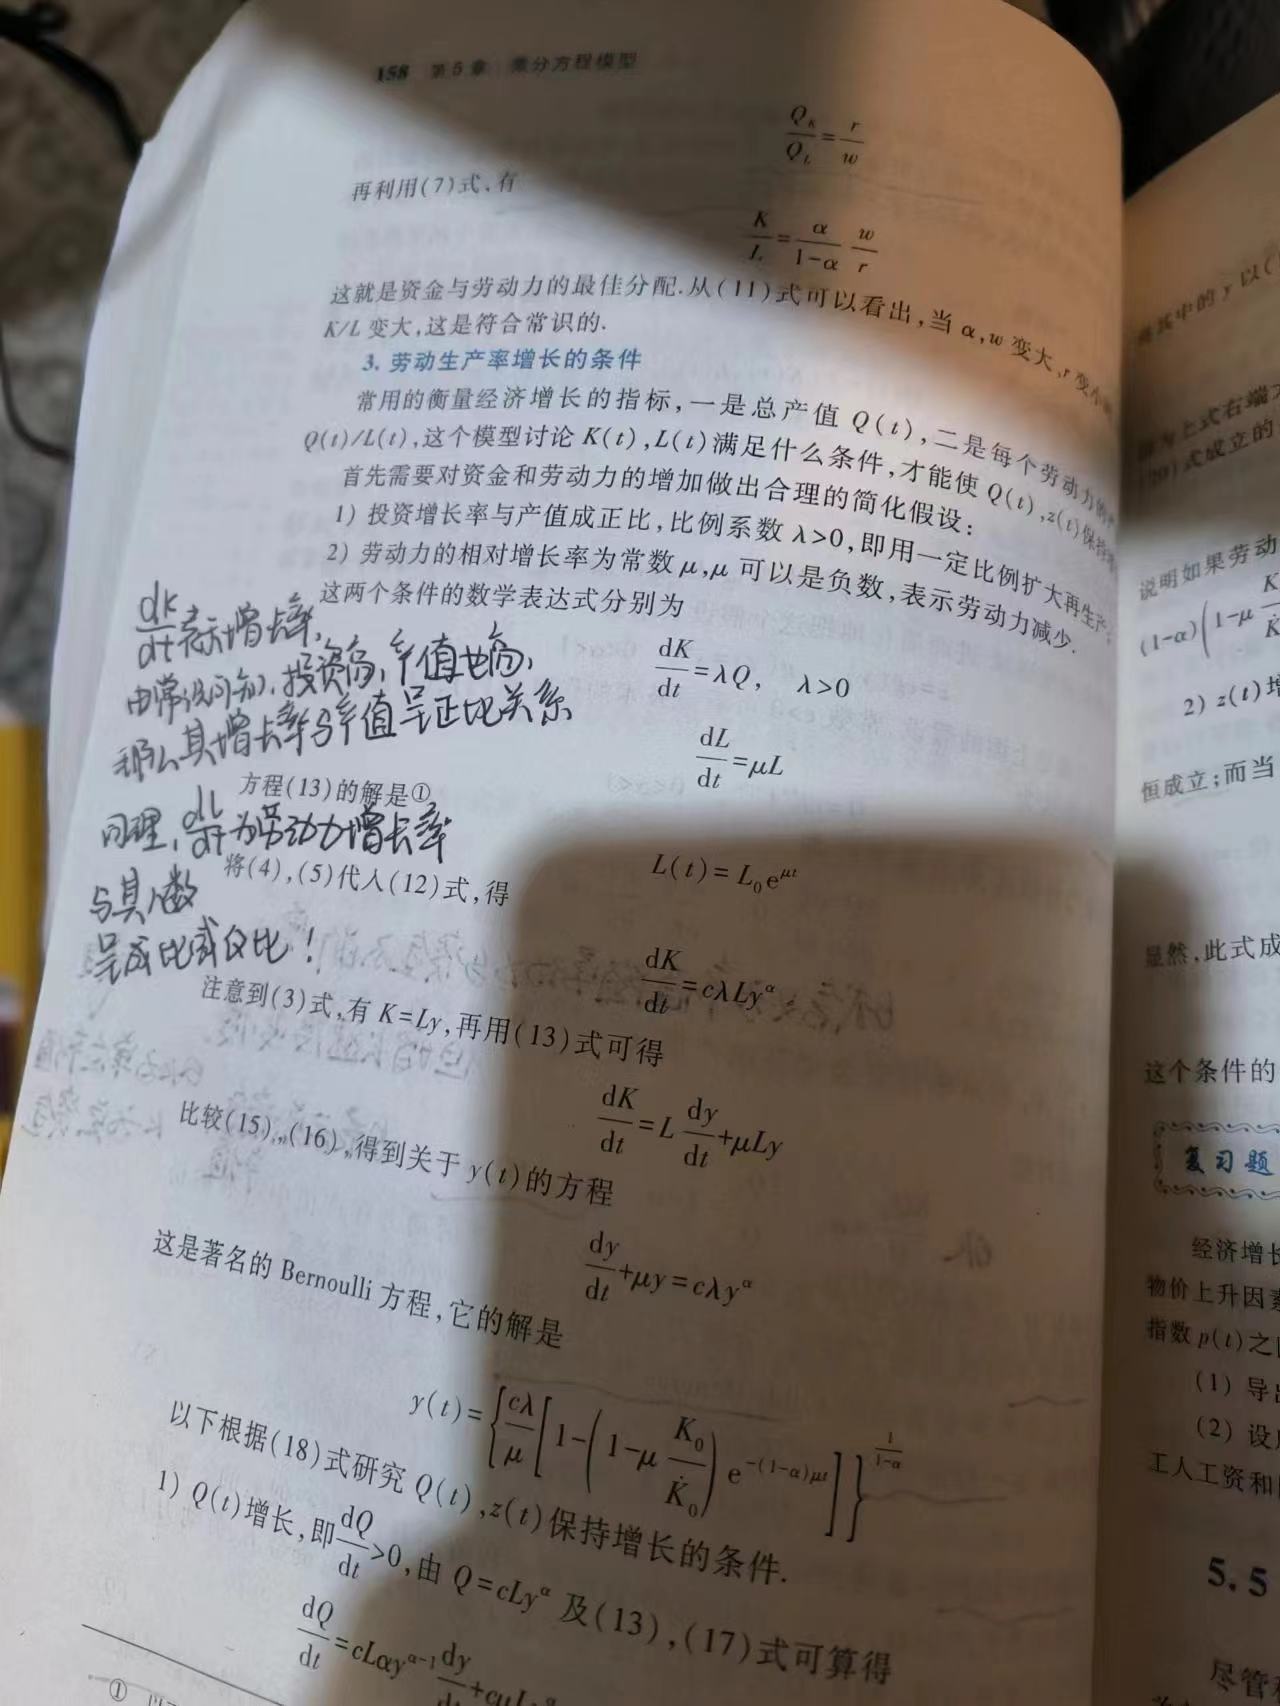 158 第5章 微分方程模型
Q_K/Q_L = r/w
再利用(7)式,有
K/L = α/(1-α) w/r
这就是资金与劳动力的最佳分配.从(11)式可以看出,当 α,w 变大,r 变小
K/L 变大,这是符合常识的.
3. 劳动生产率增长的条件
常用的衡量经济增长的指标,一是总产值 Q(t),二是每个劳动力的
Q(t)/L(t),这个模型讨论 K(t),L(t)满足什么条件,才能使 Q(t),z(t)保持
首先需要对资金和劳动力的增加做出合理的简化假设:
1) 投资增长率与产值成正比,比例系数 λ>0,即用一定比例扩大再生产
2) 劳动力的相对增长率为常数 μ,μ 可以是负数,表示劳动力减少.
这两个条件的数学表达式分别为
dK/dt 表示增长率,
由常识可知,投资高,产值也高,
那么其增长率与产值呈正比关系
dK/dt = λQ, λ>0
dL/dt = μL
方程(13)的解是①
同理,dL/dt 为劳动力增长率
L(t) = L₀e^{μt}
将(4),(5)代入(12)式,得
与其人数
呈成比或反比!
dK/dt = cλLy^α
注意到(3)式,有 K=Ly,再用(13)式可得
dK/dt = L dy/dt + μLy
比较(15),(16),得到关于 y(t)的方程
dy/dt + μy = cλy^α
这是著名的 Bernoulli 方程,它的解是
y(t) = {cλ/μ [1-(1-μ K₀/K̇₀) e^{-(1-α)μt}]}^{1/(1-α)}
以下根据(18)式研究 Q(t),z(t)保持增长的条件.
1) Q(t)增长,即 dQ/dt >0,由 Q=cLy^α 及(13),(17)式可算得
dQ/dt = cLαy^{α-1} dy/dt + cμL
①
将其中的 y 以(
说明如果劳动
(1-α)(1-μ K
2) z(t)增
恒成立;而当
显然,此式成
这个条件的
复习题
经济增长
物价上升因素
指数 p(t)之
(1) 导出
(2) 设
工人工资和
5.5
尽管